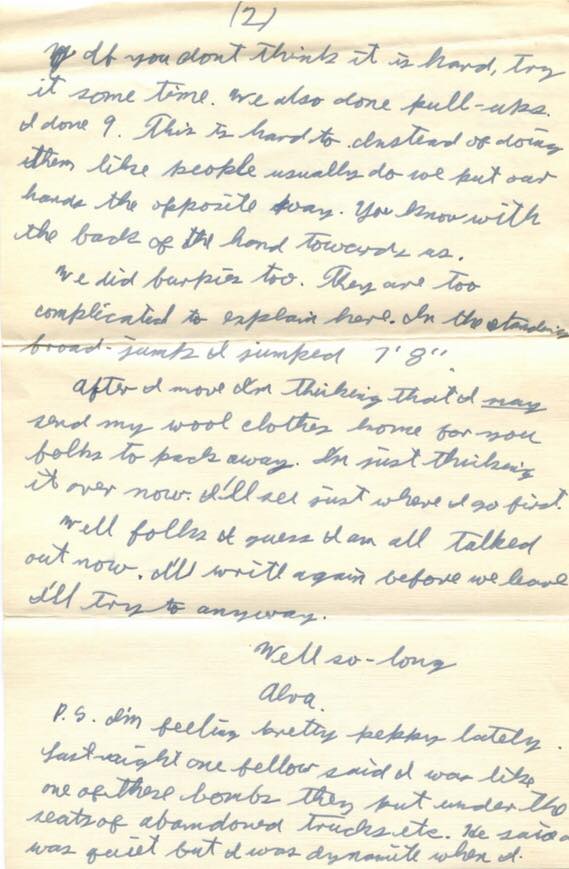 (2)
If you dont think it is hard, try
it some time. We also done pull-ups.
I done 9. This is hard to. Instead of doing
them like people usually do we put our
hands the opposite way. You know with
the back of the hand towards us.
We did burpies too. They are too
complicated to explain here. In the standing
broad-jump I jumped 7' 8".
After I move I'm thinking that I may
send my wool clothes home for you
folks to pack away. I'm just thinking
it over now. I'll see just where I go first.
Well folks I guess I am all talked
out now. I'll write again before we leave
I'll try to anyway.
Well so-long
Alva.
P.S. I'm feeling pretty peppy lately.
Last night one fellow said I was like
one of these bombs they put under the
seats of abandoned trucks etc. He said I
was quiet but I was dynamite when I